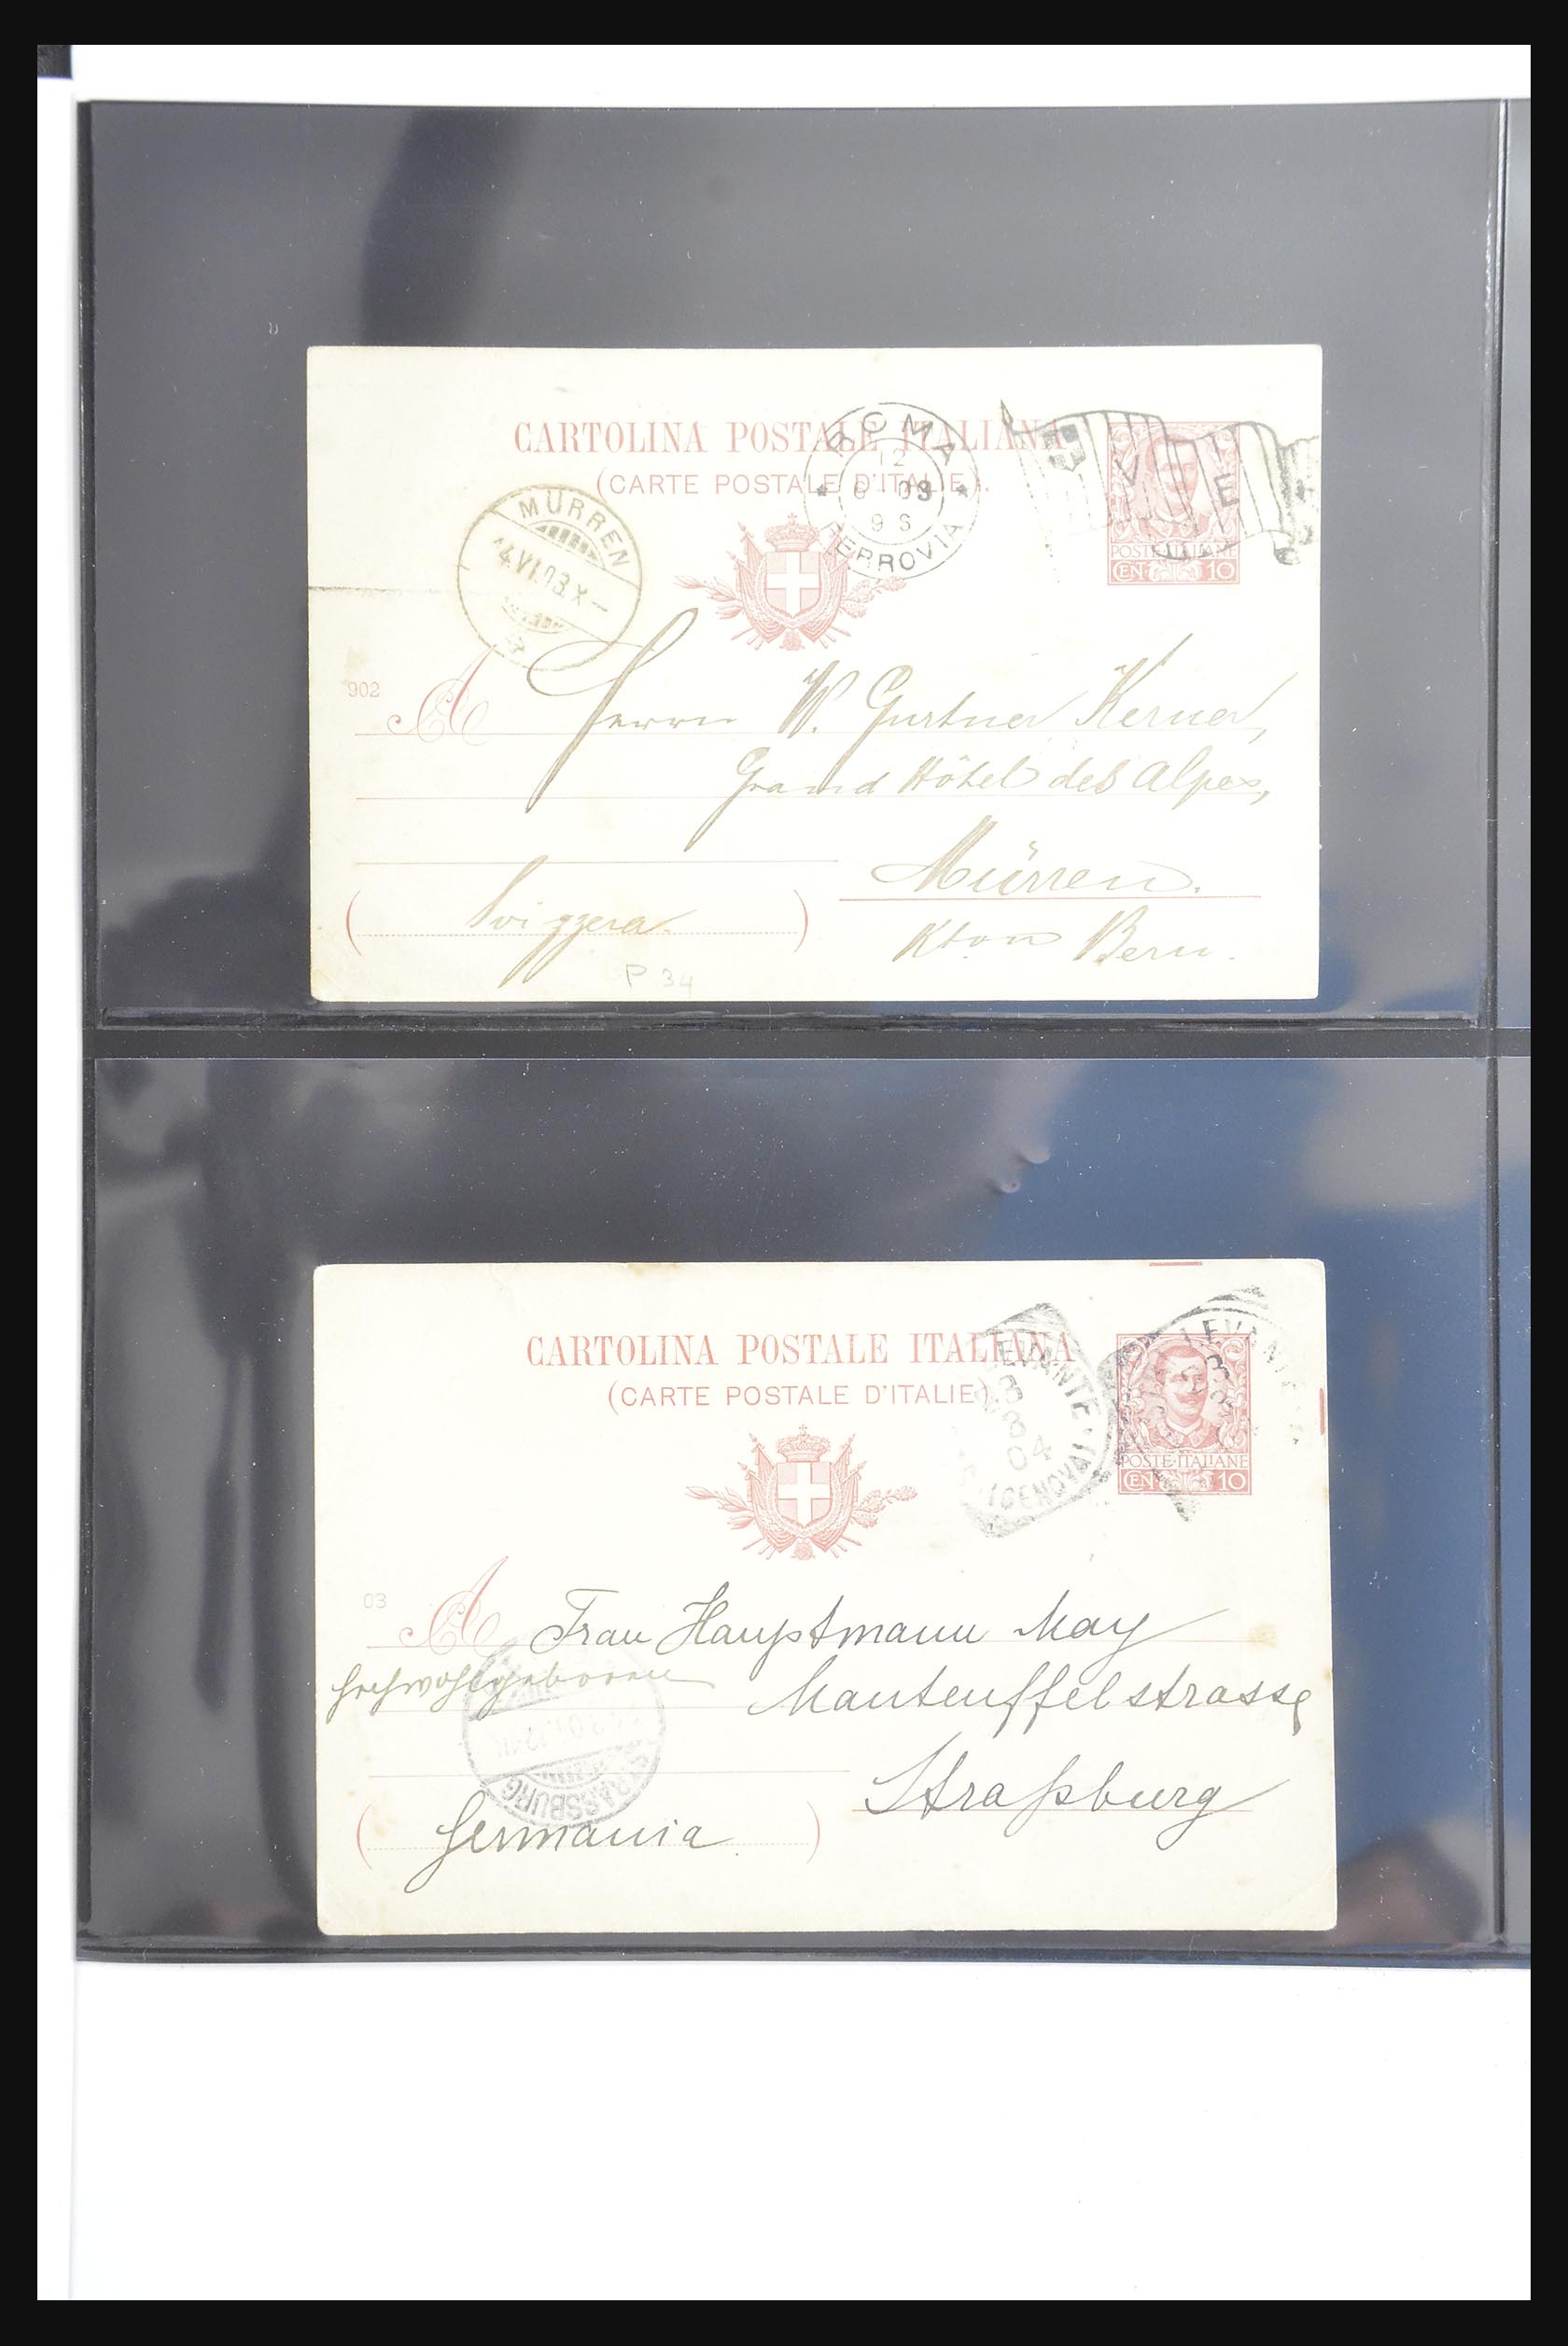 CARTOLINA POSTALE ITALIANA
(CARTE POSTALE D'ITALIE).
ROMA
12
6 - 03
9 S
FERROVIA
V E
POSTE·ITALIANE
CEN 10
MÜRREN
4.VI.03.X–
902
A Herrn W. Gurtner Kerner,
Grand Hôtel des Alpes,
Mürren.
(Svizzera.)
Kton Bern.
P 34
CARTOLINA POSTALE ITALIANA
(CARTE POSTALE D'ITALIE)
LEVANTE
3
04
(GENOVA)
LEVANTE
POSTE·ITALIANE
CEN 10
03
A Frau Hauptmann May
Hochwohlgeboren
Manteuffelstrasse
STRASSBURG
Straßburg
(Germania.)